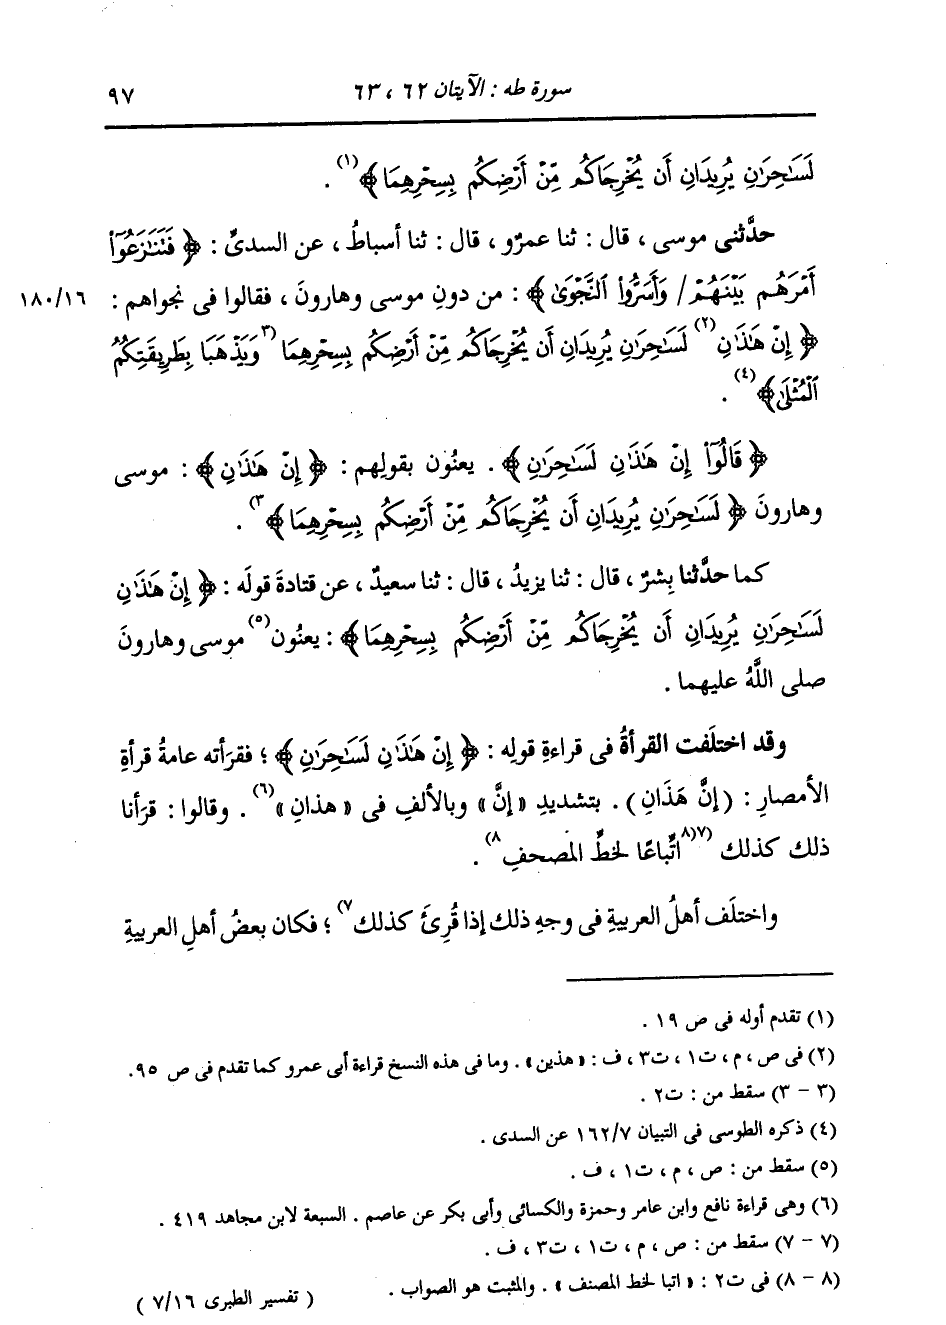 سورة طه : الآيتان ٦٢ ، ٦٣
٩٧
لَسَٰحِرَٰنِ يُرِيدَانِ أَن يُخْرِجَاكُم مِّنْ أَرْضِكُم بِسِحْرِهِمَا ﴾(١) .
حدَّثنى موسى ، قال : ثنا عمرٌو ، قال : ثنا أسباطُ ، عن السدىِّ : ﴿ فَتَنَٰزَعُوٓا۟
أَمْرَهُم بَيْنَهُمْ / وَأَسَرُّوا۟ ٱلنَّجْوَىٰ ﴾ : من دونِ موسى وهارونَ ، فقالوا فى نجواهم :
١٨٠/١٦
﴿ إِنْ هَٰذَٰنِ(٢) لَسَٰحِرَٰنِ يُرِيدَانِ أَن يُخْرِجَاكُم مِّنْ أَرْضِكُم بِسِحْرِهِمَا (٣وَيَذْهَبَا بِطَرِيقَتِكُمُ
ٱلْمُثْلَىٰ ﴾(٤) .
﴿ قَالُوٓا۟ إِنْ هَٰذَٰنِ لَسَٰحِرَٰنِ ﴾ . يعنُون بقولِهم : ﴿ إِنْ هَٰذَٰنِ ﴾ : موسى
وهارونَ ﴿ لَسَٰحِرَٰنِ يُرِيدَانِ أَن يُخْرِجَاكُم مِّنْ أَرْضِكُم بِسِحْرِهِمَا ﴾٣) .
كما حدَّثنا بِشرٌ ، قال : ثنا يزيدُ ، قال : ثنا سعيدٌ ، عن قتادةَ قولَه : ﴿ إِنْ هَٰذَٰنِ
لَسَٰحِرَٰنِ يُرِيدَانِ أَن يُخْرِجَاكُم مِّنْ أَرْضِكُم بِسِحْرِهِمَا ﴾ : يعنُون(٥) موسى وهارونَ
صلى اللَّهُ عليهما .
وقد اختلَفت القرأةُ فى قراءةِ قولِه : ﴿ إِنْ هَٰذَٰنِ لَسَٰحِرَٰنِ ﴾ ؛ فقرَأته عامةُ قرأةِ
الأمصارِ : ( إنَّ هَذَانِ ) . بتشديدِ « إنَّ » وبالألفِ فى « هذانِ »(٦) . وقالوا : قرَأنا
ذلك كذلك (٧)(٨اتِّباعًا لخطِّ المصحفِ٨) .
واختلَف أهلُ العربيةِ فى وجهِ ذلك إذا قُرِئَ كذلك٧) ؛ فكان بعضُ أهلِ العربيةِ
(١) تقدم أوله فى ص ١٩ .
(٢) فى ص ، م ، ت١ ، ت٣ ، ف : « هذين » . وما فى هذه النسخ قراءة أبى عمرو كما تقدم فى ص ٩٥.
(٣ - ٣) سقط من : ت٢ .
(٤) ذكره الطوسى فى التبيان ١٦٢/٧ عن السدى .
(٥) سقط من : ص ، م ، ت١ ، ف .
(٦) وهى قراءة نافع وابن عامر وحمزة والكسائى وأبى بكر عن عاصم . السبعة لابن مجاهد ٤١٩ .
(٧ - ٧) سقط من : ص ، م ، ت١ ، ت٣ ، ف .
(٨ - ٨) فى ت٢ : « اتبا لخط المصنف » . والمثبت هو الصواب .
( تفسير الطبرى ٧/١٦ )